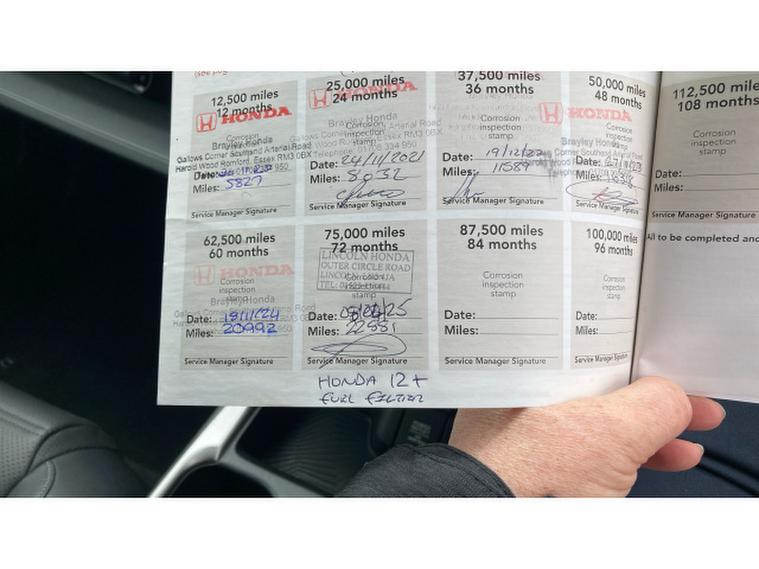 12,500 miles
12 months
HONDA
Corrosion
Brayley Honda
Gallows Corner Southend Arterial Road
Harold Wood Romford, Essex RM3 0BX
Date:
Miles: 5827
Service Manager Signature
25,000 miles
24 months
HONDA
Corrosion
inspection
stamp
Date: 24/11/2021
Miles: 8032
Service Manager Signature
37,500 miles
36 months
Corrosion
inspection
stamp
Date: 19/12/22
Miles: 11589
Service Manager Signature
50,000 miles
48 months
HONDA
Corrosion
Brayley Honda
Date:
Miles:
Service Manager Signature
112,500 miles
108 months
Corrosion
inspection
stamp
Date:
Miles:
Service Manager Signature
62,500 miles
60 months
HONDA
Corrosion
inspection
stamp
Brayley Honda
Date: 18/11/24
Miles: 20992
Service Manager Signature
75,000 miles
72 months
LINCOLN HONDA
OUTER CIRCLE ROAD
stamp
Date:
Miles: 22881
Service Manager Signature
HONDA 12+
FUEL FILTER
87,500 miles
84 months
Corrosion
inspection
stamp
Date:
Miles:
Service Manager Signature
100,000 miles
96 months
Corrosion
inspection
stamp
Date:
Miles:
Service Manager Signature
All to be completed and